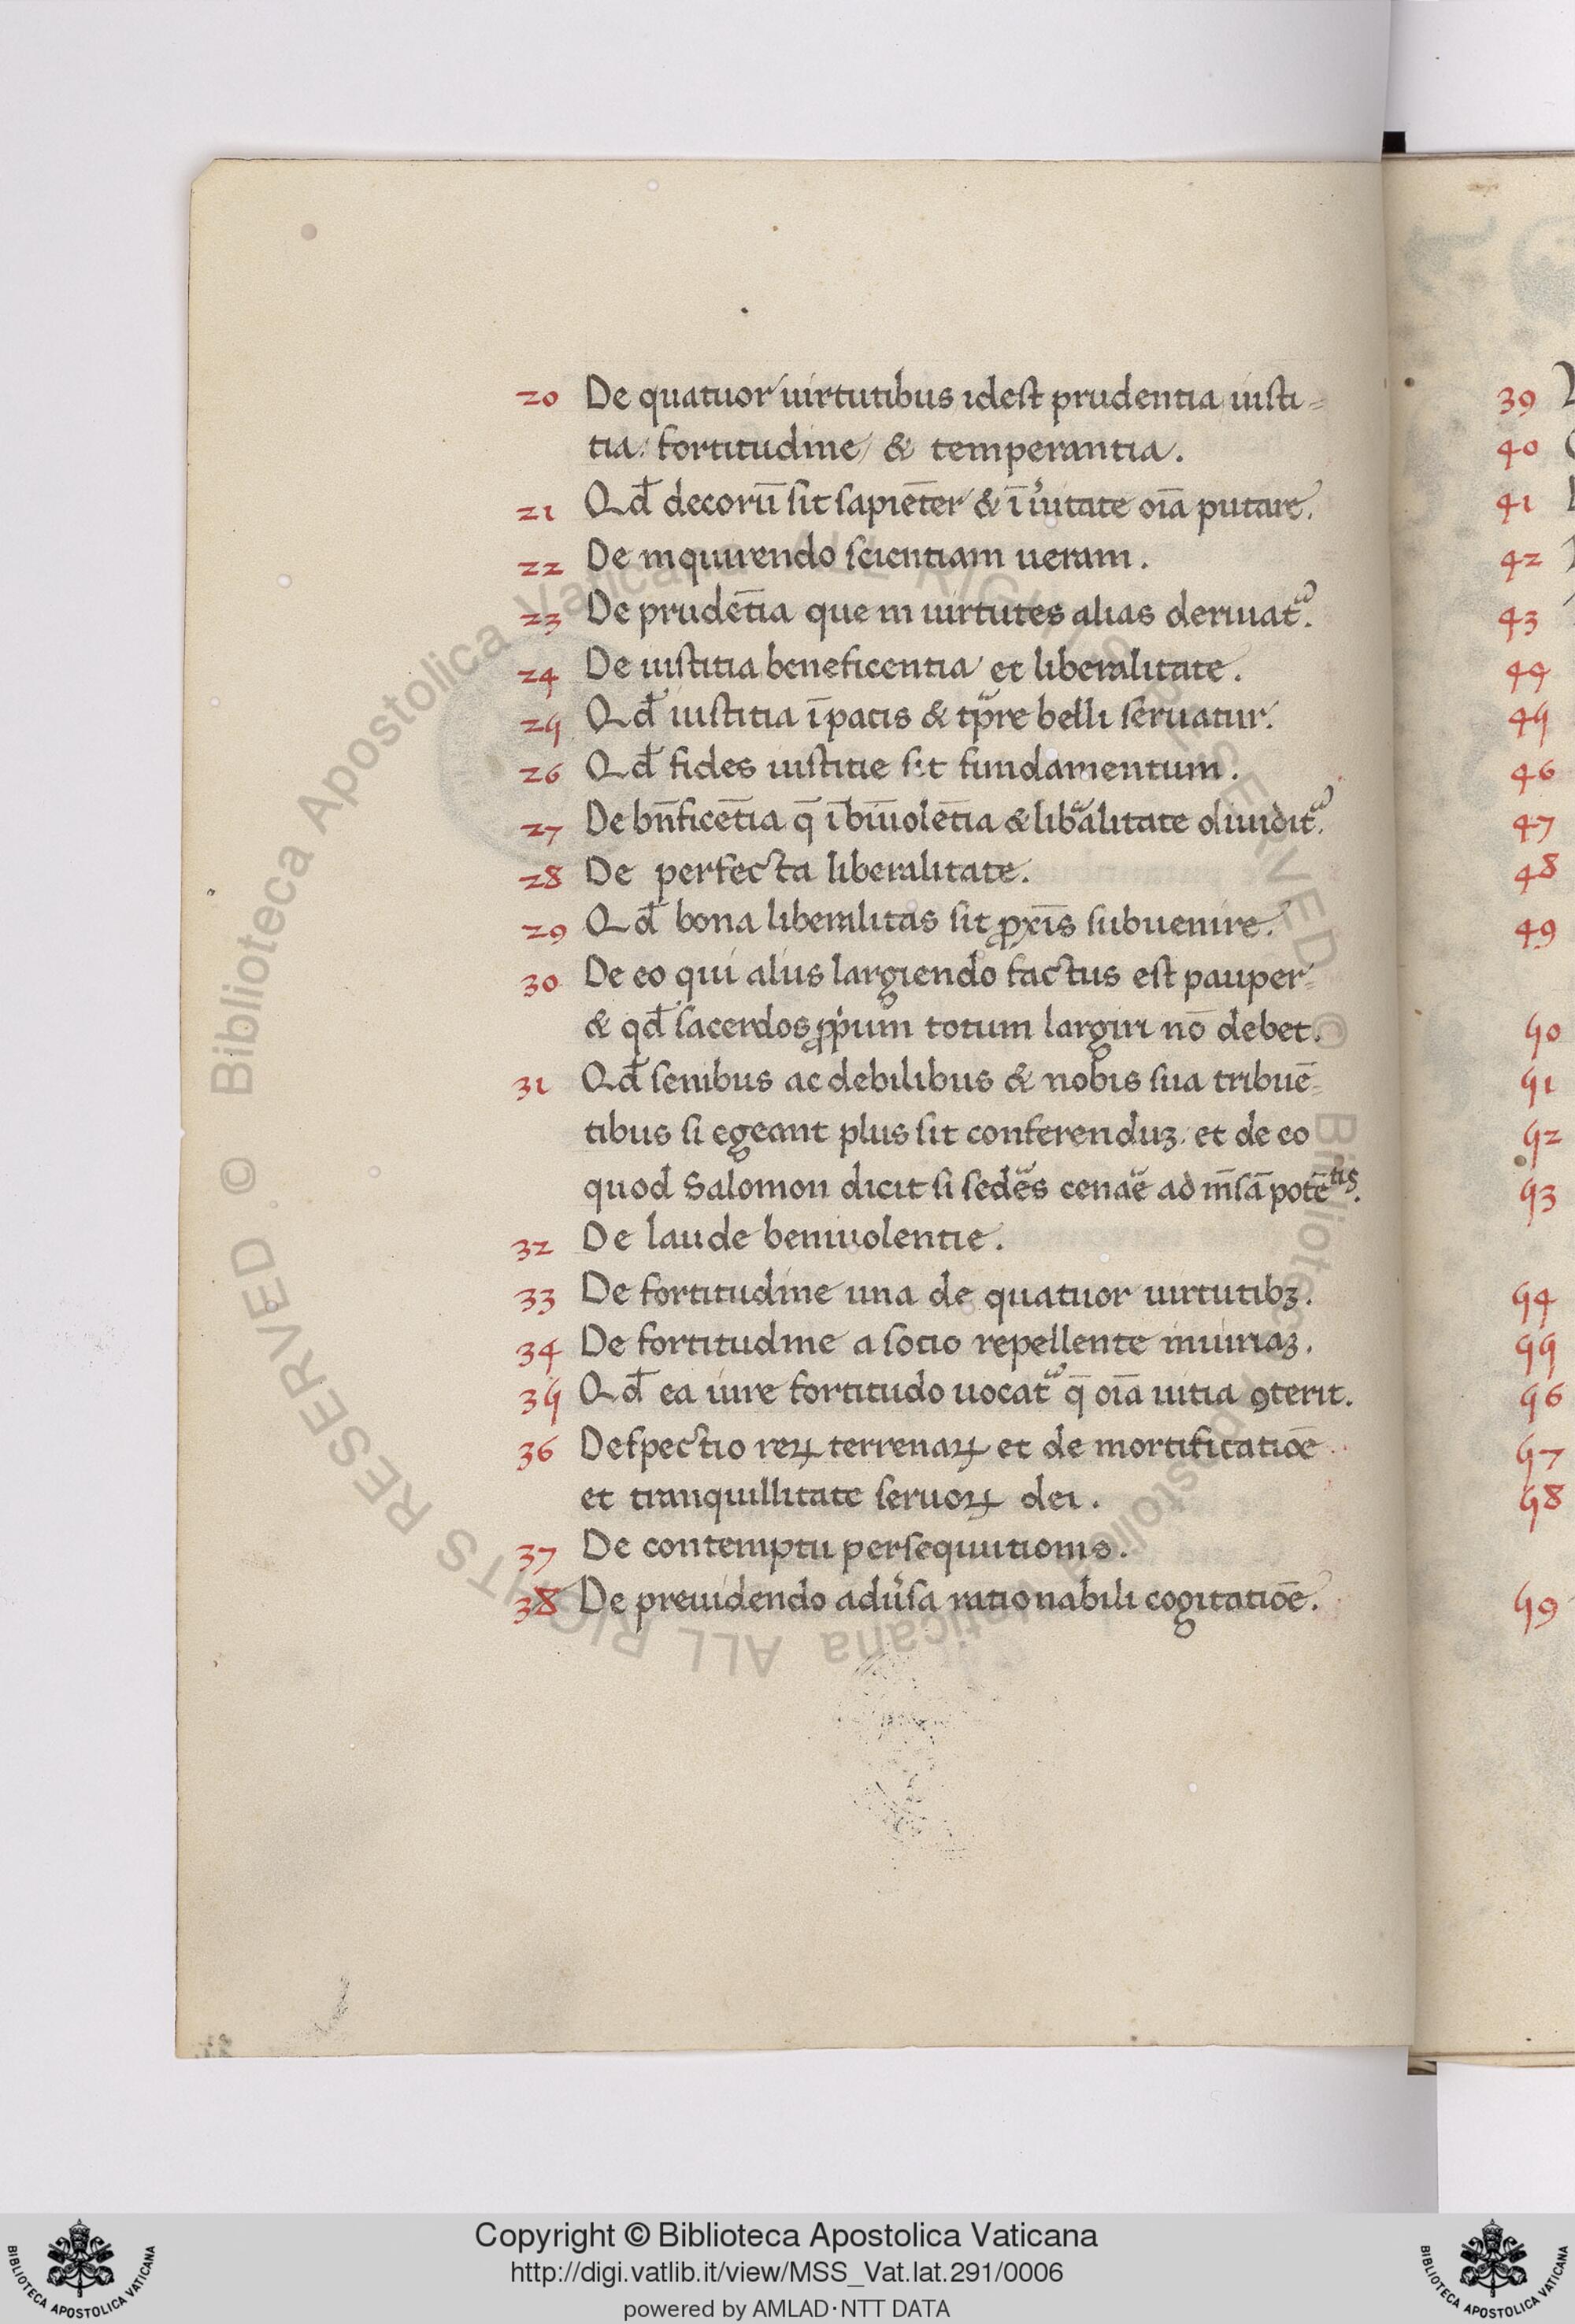 20 De quatuor uirtutibus idest prudentia iusti=
tia: fortitudine/ & temperantia.
21 Qđ decorū sit sapiēter & ī uͥtate oīa putare.
22 De inquirendo scientiam ueram.
23 De prudētia que in uirtutes alias deriuat᷑.
24 De iustitia beneficentia et liberalitate.
25 Qđ iustitia ī patis & tꝑre belli seruatur.
26 Qđ fides iustitie sit fundamentum.
27 De bn̄ficētia q̄ ī bīuolētia & libᵃalitate diuidit᷑.
28 De perfecta liberalitate.
29 Qđ bona liberalitas sit ꝓxīs subuenire.
30 De eo qui aliis largiendo factus est pauper=
& qđ sacerdos ꝓpͥum totum largiri nō debet.
31 Qđ senibus ac debilibus & nobis sua tribuē=
tibus si egeant plus sit conferenduꝫ. et de eo
quod Salomon dicit si sedes cenae ad m̄sā potē tis.
32 De laude beniuolentie.
33 De fortitudine una de quatuor uirtutibꝫ.
34 De fortitudine a sotio repellente iniuriaꝫ.
35 Qđ ea iure fortitudo uocat᷑ q̄ oīa uitia ꝯterit.
36 Despectio reꝝ terrenaꝝ et de mortificatiōe
et tranquillitate seruoꝝ dei.
37 De contemptu persequutionis.
38 De preuidendo aduͥsa rationabili cogitatiōe.
39
40
41
42
43
44
45
46
47
48
49
50
51
52
53
54
55
56
57
58
59
© Biblioteca Apostolica Vaticana ALL RIGHTS RESERVED © Biblioteca Apostolica Vaticana ALL RIGHTS RESERVED
Copyright © Biblioteca Apostolica Vaticana
http://digi.vatlib.it/view/MSS_Vat.lat.291/0006
powered by AMLAD·NTT DATA
BIBLIOTECA APOSTOLICA VATICANA
BIBLIOTECA APOSTOLICA VATICANA